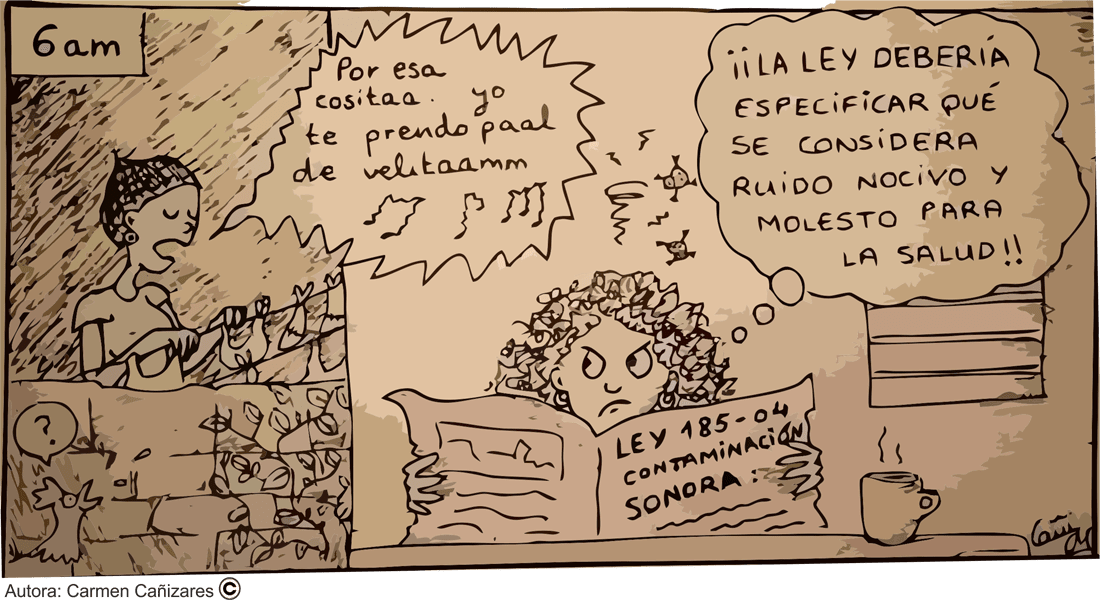 6am
Por esa
cositaa. yo
te prendo paal
de velitaamm
¡¡LA LEY DEBERÍA
ESPECIFICAR QUÉ
SE CONSIDERA
RUIDO NOCIVO Y
MOLESTO PARA
LA SALUD!!
?
LEY 185-04
CONTAMINACIÓN
SONORA:
Cañi
Autora: Carmen Cañizares ©